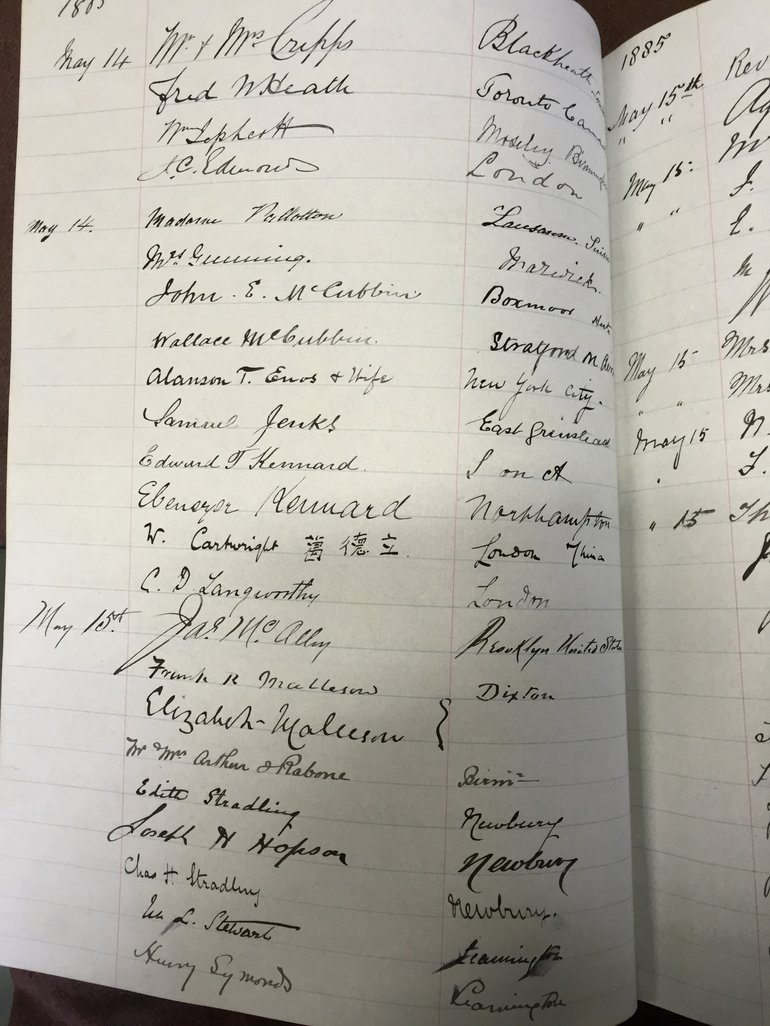 1885
May 14 Mr & Mrs Cripps Blackheath
Fred W Heath Toronto
Moseley
J. C. Edmonds London
May 14. Madame Lausanne.
Mrs Gunning. Warwick.
John. E. McCubbin Boxmoor Herts
Wallace McCubbin. Stratford
Alanson T. Enos & Wife New York City.
Samuel Jenks East Grinstead
Edward T Kennard.
Ebenezer Kennard Northampton
W. Cartwright 萬 德 立. London China
C. D Langworthy London
May 15th. Jas. McAlley Brooklyn United States
Frank R Malleson Dixton
Elizabeth Malleson }
Mr & Mrs Arthur J Rabone Birmm
Edith Stradling Newbury
Joseph H Hopson Newbury
Chas H. Stradling Newbury.
L. Stewart Leamington
Henry Symonds Leamington
1885
May 15th Rev
" "
May 15. J.
" " E.
M
May 15 Mrs
" " Mrs
May 15
" 15